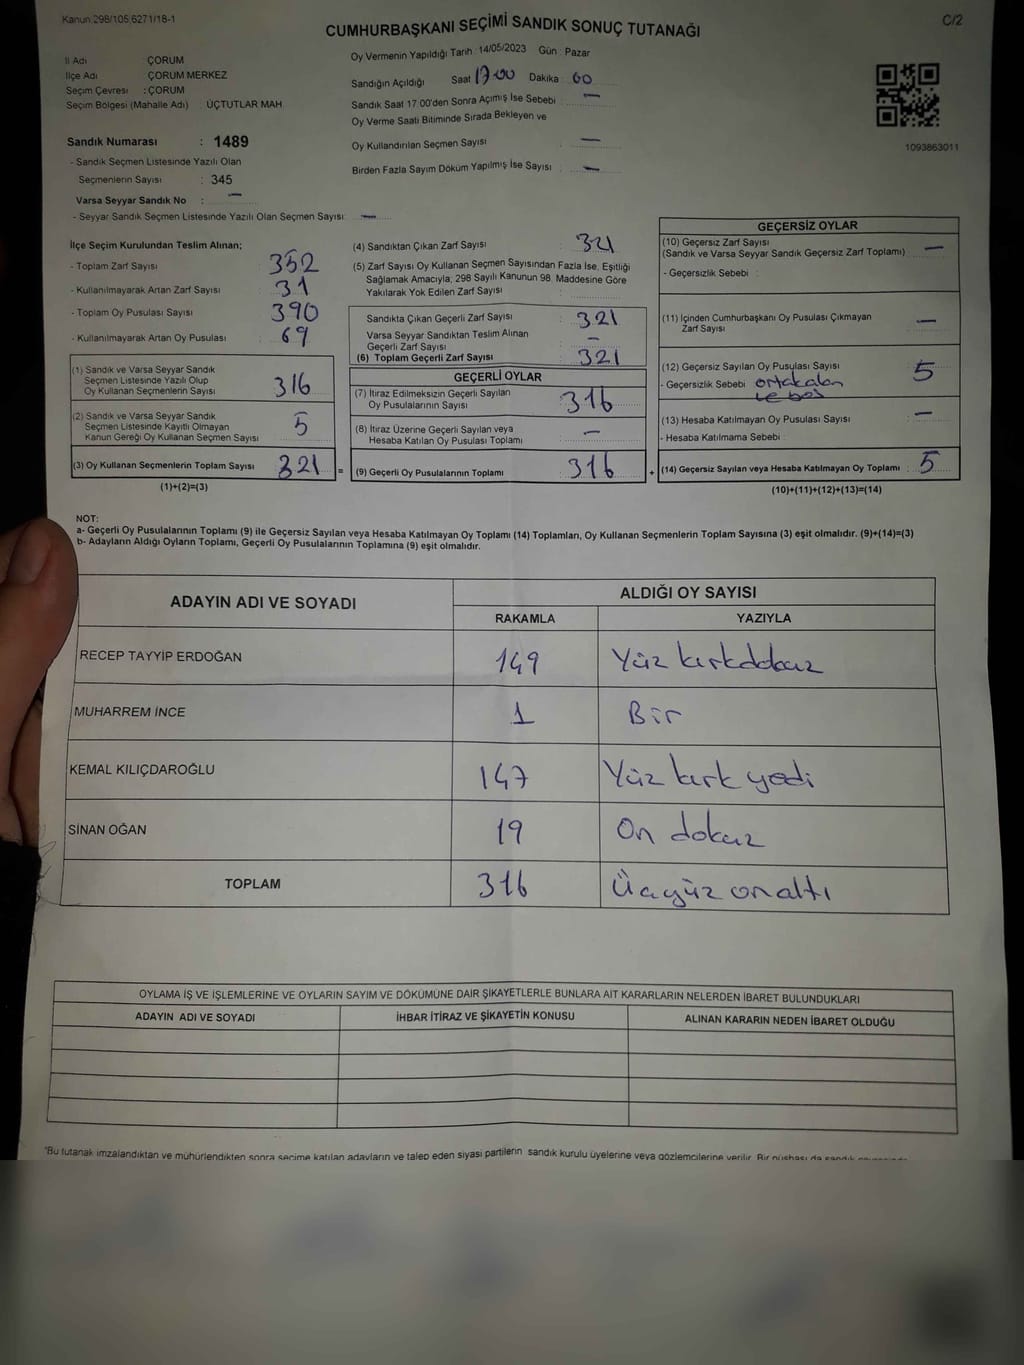 Kanun:298/105 6271/18-1
CUMHURBAŞKANI SEÇİMİ SANDIK SONUÇ TUTANAĞI
C/2
İl Adı : ÇORUM
İlçe Adı : ÇORUM MERKEZ
Seçim Çevresi : ÇORUM
Seçim Bölgesi (Mahalle Adı) : ÜÇTUTLAR MAH.
Sandık Numarası : 1489
- Sandık Seçmen Listesinde Yazılı Olan
Seçmenlerin Sayısı : 345
Varsa Seyyar Sandık No : —
- Seyyar Sandık Seçmen Listesinde Yazılı Olan Seçmen Sayısı: —
Oy Vermenin Yapıldığı Tarih :14/05/2023 Gün : Pazar
Sandığın Açıldığı Saat 17:00 Dakika : 00
Sandık Saat 17:00'den Sonra Açımış İse Sebebi : —
Oy Verme Saati Bitiminde Sırada Bekleyen ve
Oy Kullandırılan Seçmen Sayısı : —
Birden Fazla Sayım Döküm Yapılmış İse Sayısı : —
1093863011
İlçe Seçim Kurulundan Teslim Alınan;
- Toplam Zarf Sayısı : 352
- Kullanılmayarak Artan Zarf Sayısı : 31
- Toplam Oy Pusulası Sayısı : 390
- Kullanılmayarak Artan Oy Pusulası : 69
(1) Sandık ve Varsa Seyyar Sandık
Seçmen Listesinde Yazılı Olup
Oy Kullanan Seçmenlerin Sayısı : 316
(2) Sandık ve Varsa Seyyar Sandık
Seçmen Listesinde Kayıtlı Olmayan
Kanun Gereği Oy Kullanan Seçmen Sayısı : 5
(3) Oy Kullanan Seçmenlerin Toplam Sayısı : 321
(1)+(2)=(3)
(4) Sandıktan Çıkan Zarf Sayısı : 321
(5) Zarf Sayısı Oy Kullanan Seçmen Sayısından Fazla İse, Eşitliği
Sağlamak Amacıyla; 298 Sayılı Kanunun 98. Maddesine Göre
Yakılarak Yok Edilen Zarf Sayısı :
Sandıkta Çıkan Geçerli Zarf Sayısı : 321
Varsa Seyyar Sandıktan Teslim Alınan
Geçerli Zarf Sayısı : —
(6) Toplam Geçerli Zarf Sayısı : 321
GEÇERLİ OYLAR
(7) İtiraz Edilmeksizin Geçerli Sayılan
Oy Pusulalarının Sayısı : 316
(8) İtiraz Üzerine Geçerli Sayılan veya
Hesaba Katılan Oy Pusulası Toplamı : —
= (9) Geçerli Oy Pusulalarının Toplamı : 316 +
GEÇERSİZ OYLAR
(10) Geçersiz Zarf Sayısı
(Sandık ve Varsa Seyyar Sandık Geçersiz Zarf Toplamı) : —
- Geçersizlik Sebebi :
(11) İçinden Cumhurbaşkanı Oy Pusulası Çıkmayan
Zarf Sayısı : —
(12) Geçersiz Sayılan Oy Pusulası Sayısı : 5
- Geçersizlik Sebebi :
(13) Hesaba Katılmayan Oy Pusulası Sayısı : —
- Hesaba Katılmama Sebebi :
(14) Geçersiz Sayılan veya Hesaba Katılmayan Oy Toplamı : 5
(10)+(11)+(12)+(13)=(14)
NOT:
a- Geçerli Oy Pusulalarının Toplamı (9) ile Geçersiz Sayılan veya Hesaba Katılmayan Oy Toplamı (14) Toplamları, Oy Kullanan Seçmenlerin Toplam Sayısına (3) eşit olmalıdır. (9)+(14)=(3)
b- Adayların Aldığı Oyların Toplamı, Geçerli Oy Pusulalarının Toplamına (9) eşit olmalıdır.
ADAYIN ADI VE SOYADI
ALDIĞI OY SAYISI
RAKAMLA YAZIYLA
RECEP TAYYİP ERDOĞAN 149 Yüz kırkdokuz
MUHARREM İNCE 1 Bir
KEMAL KILIÇDAROĞLU 147 Yüz kırk yedi
SİNAN OĞAN 19 On dokuz
TOPLAM 316 Üçyüz onaltı
OYLAMA İŞ VE İŞLEMLERİNE VE OYLARIN SAYIM VE DÖKÜMÜNE DAİR ŞİKAYETLERLE BUNLARA AİT KARARLARIN NELERDEN İBARET BULUNDUKLARI
ADAYIN ADI VE SOYADI İHBAR İTİRAZ VE ŞİKAYETİN KONUSU ALINAN KARARIN NEDEN İBARET OLDUĞU
*Bu tutanak imzalandıktan ve mühürlendikten sonra seçime katılan adayların ve talep eden siyasi partilerin sandık kurulu üyelerine veya gözlemcilerine verilir. Bir nüshası da sandık